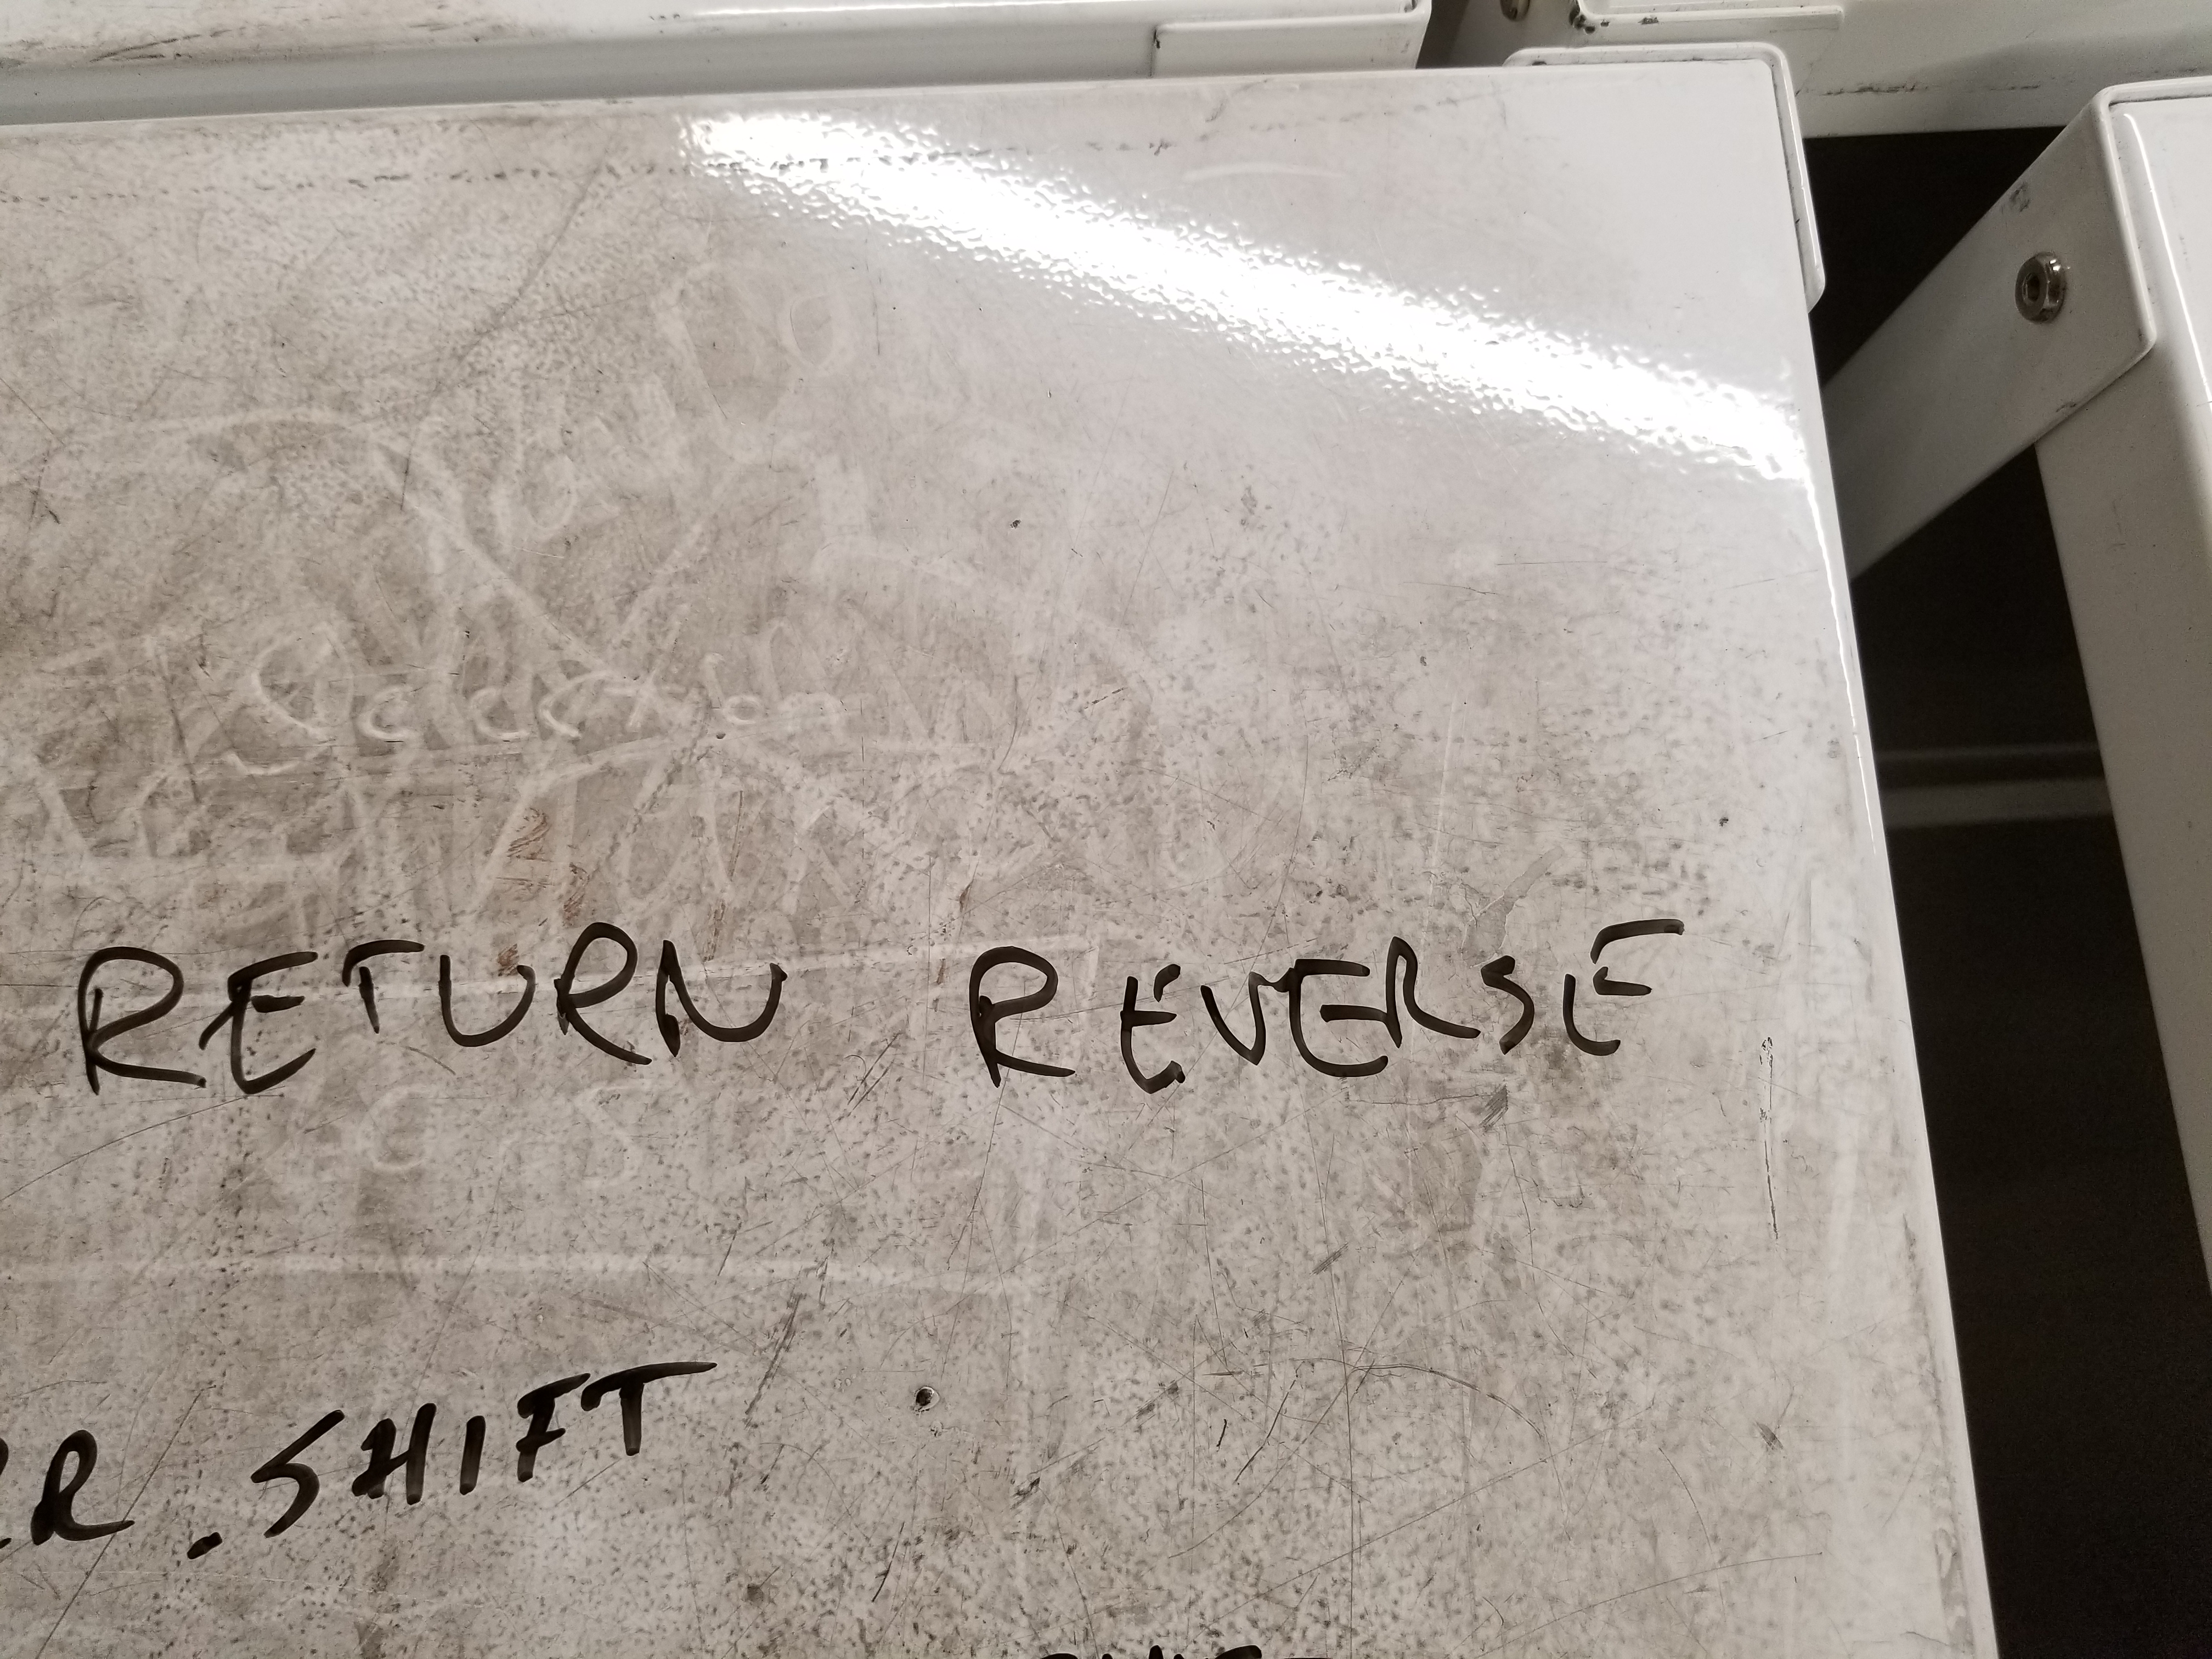 RETURN REVERSE
R. SHIFT